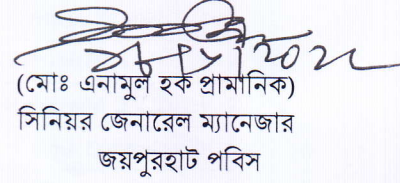 (মোঃ এনামুল হক প্রামানিক)
সিনিয়র জেনারেল ম্যানেজার
জয়পুরহাট পবিস